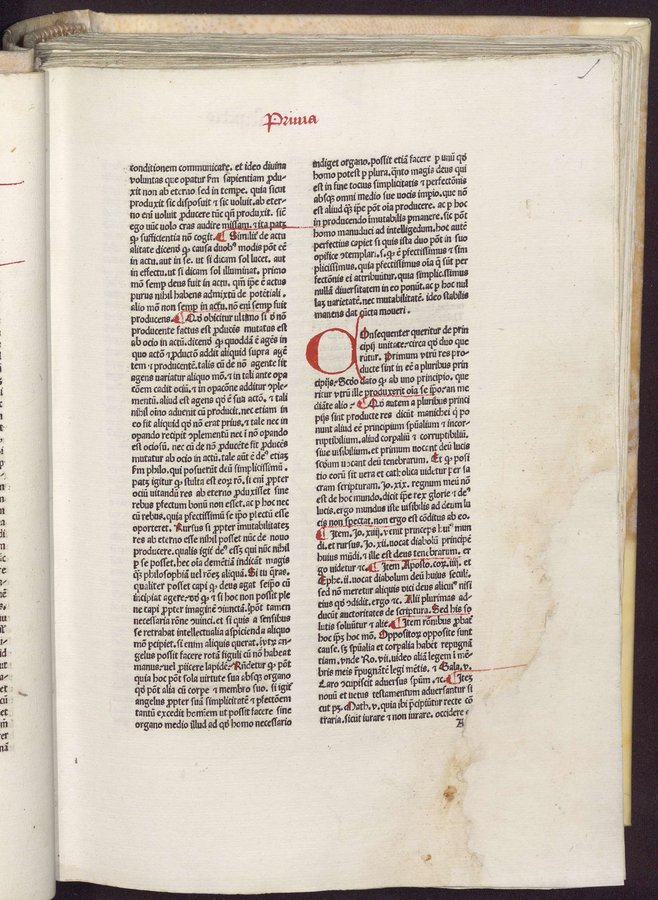 Prima
conditionem communicare. et ideo diuina
voluntas que opatur fm sapientiam pdu-
xit non ab eterno sed in tempe. quia sicut
produxit sic disposuit ⁊ sic uoluit. ab eter-
no eni uoluit ꝓducere tūc qñ produxit. siḉ
ego uūc volo cras audire missam. ⁊ ita patꝫ
ꝙ sufficientia nō cogit. ¶ Simil'r de actu
alitate dicenđ ꝙ causa duobꝰ modis pōt eē
in actu. aut in se. ut si dicam sol lucet. aut
in effectu. ut si dicam sol illuminat. primo
mō semp deus fuit in actu. qm̄ ip̄e ē actus
purus nihil habens admixtū de potētiali.
alio mōn semp in actu. nō eni semp fuit
producens. ¶ Qđ obicitur ultimo si đ nō
producente factus est ꝓducēs mutatus est
ab ocio in actū. dicenđ ꝙ quoddā ē agēs in
quo actō ⁊ ꝓductō addit aliquid supra agē
tem ⁊ producentē. talis cū de nō agente fit
agens uariatur aliquo mō. ⁊ in tali ante opa
tōem cadit ociū. ⁊ in opacōne additur ↄple-
mentū. aliud est agens qđ ē sua actō. ⁊ tali
nihil oīno aduenit cū producit. nec etiam in
eo fit aliquid qđ nō erat prius. ⁊ tale nec in
opando recipit ↄplementū nec ī nō opando
est ociosū. nec cū de nō ꝓducēte fit ꝓducēs
mutatur ab ocio in actū. tale aūt ē deꝰ etiaꝫ
fm philo. qui posuerūt deū simplicissimū.
patꝫ igitur ꝙ stulta est eoꝝ rō. si eni ꝓpter
ociū uitandū res ab eterno ꝓduxisset sine
rebus pfectum bonū non esset. ac p hoc nec
cū rebus. quia pfectissimū se ip̄o pfectū esse
oporteret. Rursus si ꝓpter imutabilitateꝫ
res ab eterno esse nihil posset nūc de nouo
producere. qualis igiť deꝰ esseꝫ qui nūc nihil
p se posset. hec oīa demētiā indicāt magis
qꝫ philosophiā uel rōeꝫ aliquā. Si tu q̄ras.
qualiter posset capi ꝙ deus agat seip̄o cū
incipiat agere. đđ ꝙ ⁊ si hoc non possit ple
ne capi ꝓpter imaginē ↄiunctā. ꝑōt tamen
necessaria rōne ↄuinci. et si quis a sensibus
se retrahat intellectualia aspiciendo aliquo
mō ꝑcipiet. si enim aliquis querat. utꝝ an-
gelus possit facere rotā figuli cū nō habeat
manus. uel ꝓiicere lapidē. Rn̄detur ꝙ pōt
quia hoc pōt sola virtute sua absqꝫ organo
qđ pōt alia cū corpe ⁊ membro suo. si igiť
angelus ꝓpter suā simplicitatē ⁊ pfectōem
tantū excedit hoīem ut possit facere sine
organo medio illud ad qđ homo necessario
indiget organo. possit etiā facere p unū qđ
homo potest p plura. q̄nto magis deus qui
est in fine tocius simplicitatis ⁊ perfectōnis
absqꝫ omni medio sue uocis impio. que nō
est aliud qꝫ ip̄e pōt oīa producere. ac p hoc
in producendo imutabilis pmanere. sic pōt
homo manuduci ad intelligedum. hoc autē
perfectius capiet si quis ista duo pōt in suo
opifice ↄtemplari. s. ꝙ ē pfectissimus ⁊ sim
plicissimus. quia pfectissimus oīa q̄ sūt per
fectōnis ei attribuūtur. quia simplicissimus
nullā diuersitatem in eo ponūt. ac p hoc nul
laꝫ varietatē. nec mutabilitatē. ideo stabilis
manens dat cūcta moueri.
COnsequenter queritur de prin
cipij unitate. circa qđ duo que
rūtur. Primum utrū res pro-
ducte sunt in eē a pluribus prin
cipijs. Scđo dato ꝙ ab uno principio. que
ritur vtrū ille produxerit oīa se ip̄o. an me
diāte alio. ¶ Qđ autem a pluribus princi
pijs sint producte res dicūt manichei q̄ po
nunt aliud eē principium spūalium ⁊ incor-
ruptibilium. aliud corpaliū ⁊ corruptibiliū.
siue uisibilium. et primum uocant deū lucis
scđum uocant deū tenebrarum. Et ꝙ posi
tio eorū sit vera et catholica videtur per sa
cram scripturam. Jo. xix. regnum meū nō
est de hoc mundo. dicit ip̄e rex glorie ⁊ deꝰ
lucis. ergo mundus iste uisibilis ad deum lu
cis non spectat. non ergo est cōditus ab eo.
¶ Item. Jo. xiiij. venit princeps huiꝰ mun
di. et rursus. Jo. xij. uocat diabolū principē
huius mūdi. ⁊ ille est deus tenebrarum. er
go uidetur ⁊c. ¶ Item Apostol'. coꝝ. iiij. et
Ephe. ij. uocat diabolum deū huius seculi.
sed nō meretur aliquis dici deus alicuiꝰ nisi
tius qđ ↄdidit. ergo ⁊c. Alij plurimas ad-
ducūt auctoritates de scriptura. Sed his so
lutis soluūtur ⁊ alie. ¶ Item rōnibus ꝓbāt
hoc ip̄ꝫ hoc mō. Oppositoꝝ opposite sunt
cause. sꝫ spūalia et corpalia habēt repugnā
tiam. vnde Ro. vij. video aliā legem ī mē-
bris meis repugnātē legi mētis. ⁊ Gala. v.
Caro ↄcupiscit aduersus spūm. ⁊c. ¶ Iteꝫ
nouū et uetus testamentum aduersantur si
cut pꝫ. Math. v. quia ibi p̄cipiūtur recte cō
traria. sicut iurare ⁊ non iurare. occidere ⁊
A